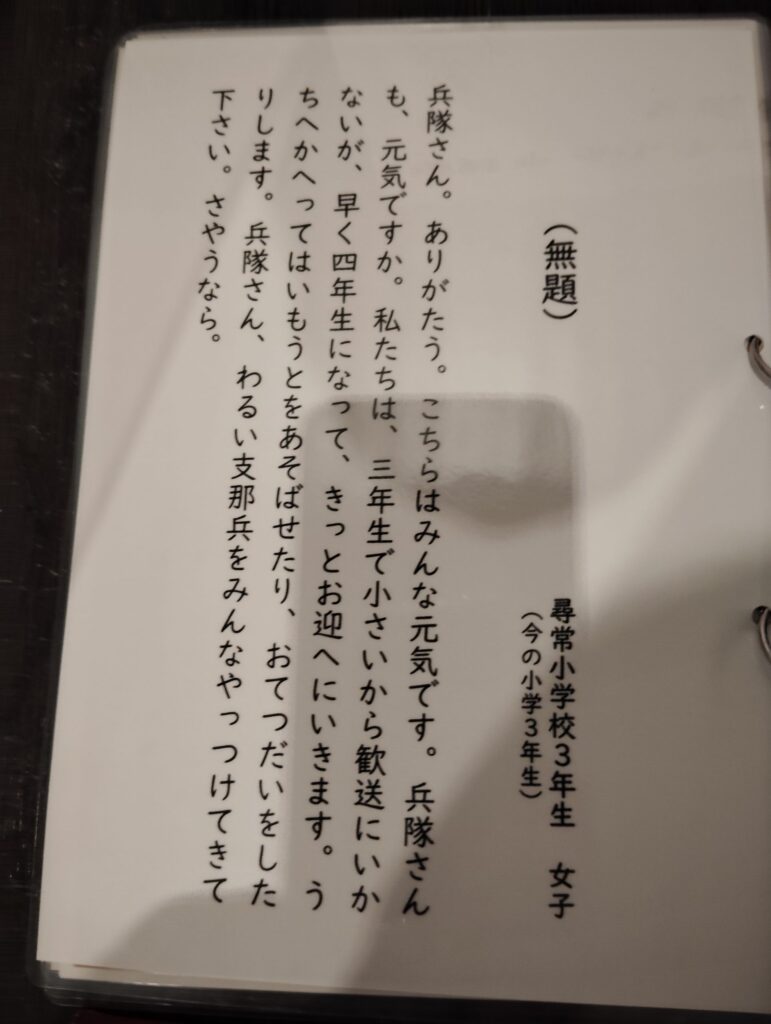 （無題）
尋常小学校３年生　女子
（今の小学３年生）
兵隊さん。ありがたう。こちらはみんな元気です。兵隊さん
も、元気ですか。私たちは、三年生で小さいから歓送にいか
ないが、早く四年生になって、きっとお迎へにいきます。う
ちへかへってはいもうとをあそばせたり、おてつだいをした
りします。兵隊さん、わるい支那兵をみんなやっつけてきて
下さい。さやうなら。